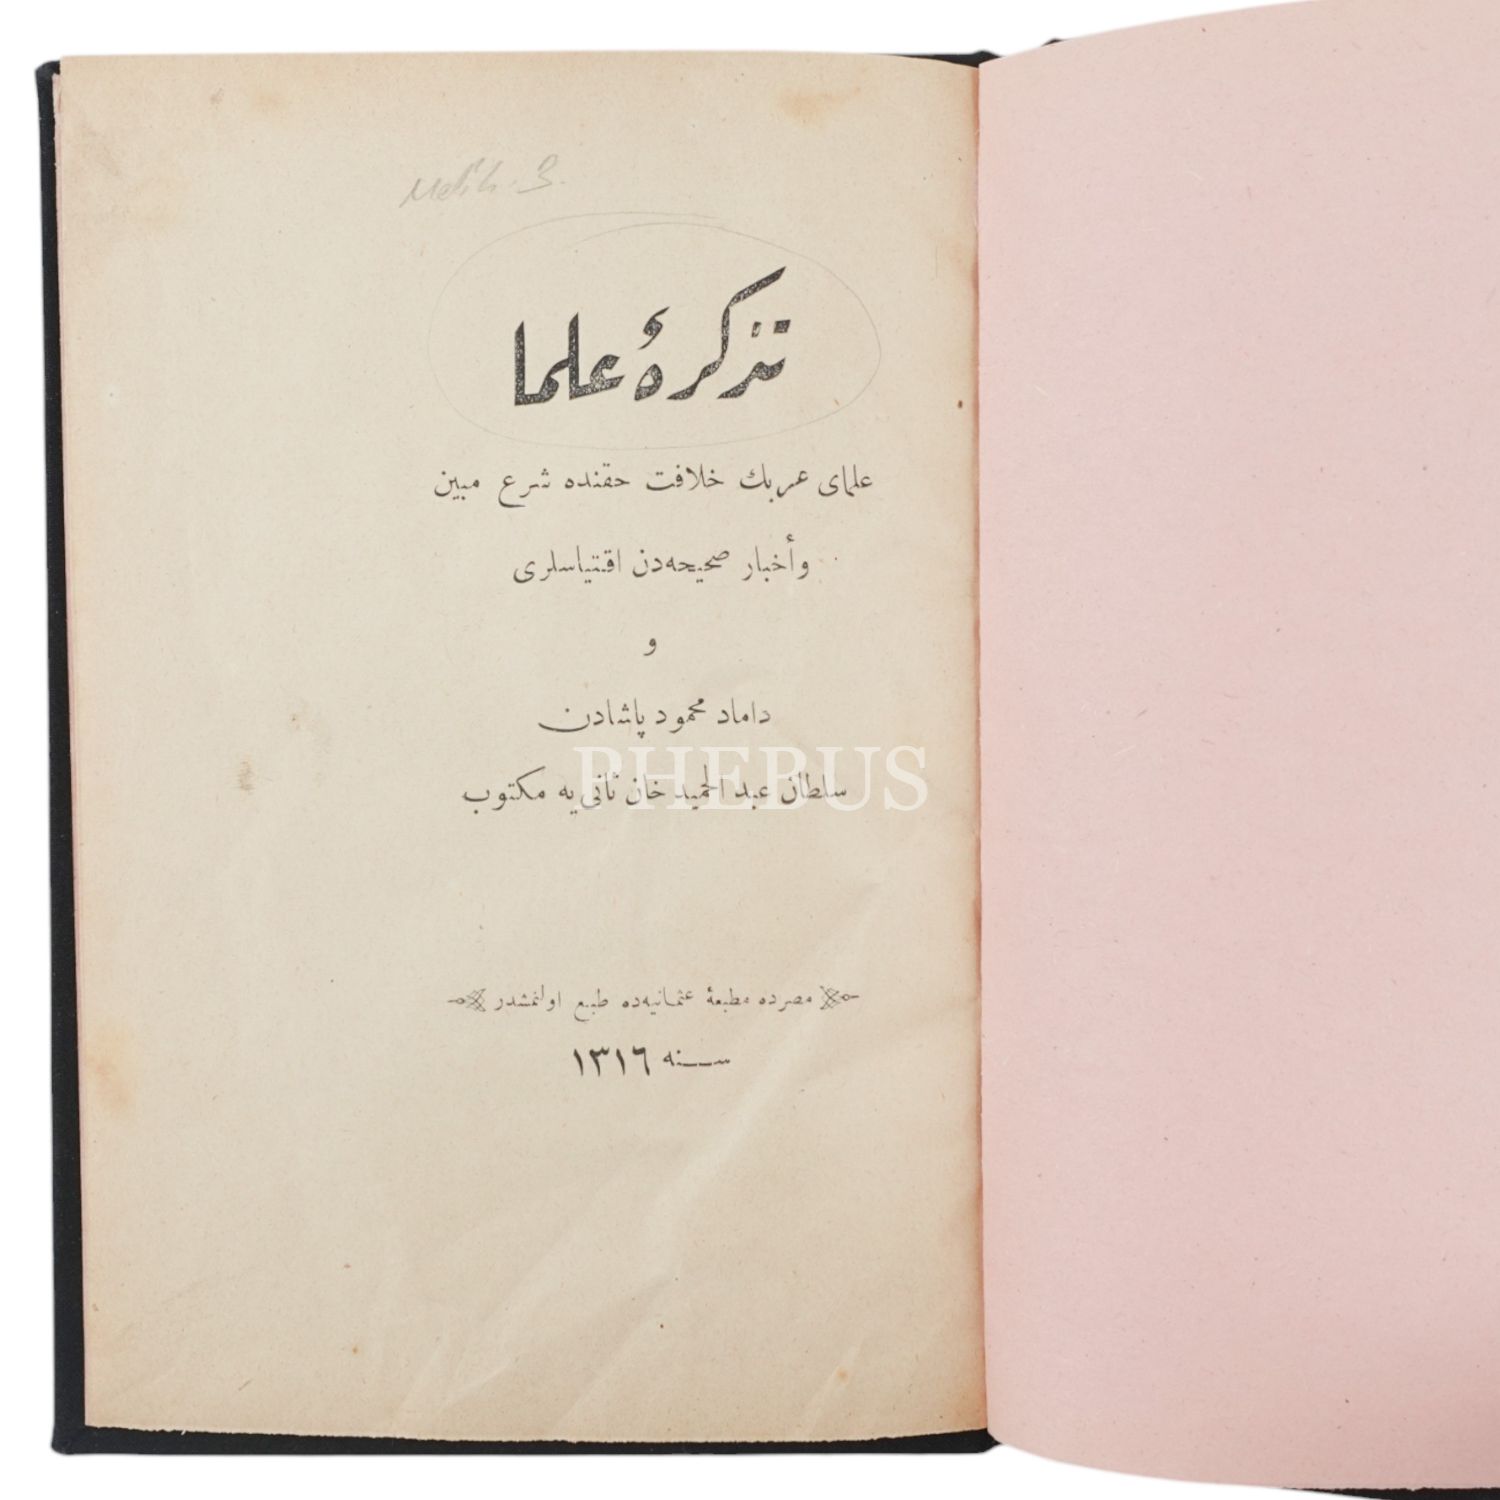 Melih. B.
تذكرهٔ علما
علمای عربك خلافت حقنده شرع مبین
وأخبار صحیحه‌دن اقتیاسلری
و
داماد محمود پاشادن
سلطان عبد الحمید خان ثانی یه مكتوب
PHEBUS
مصرده مطبعهٔ عثمانیه‌ده طبع اولنمشدر
سنه ١٣١٦